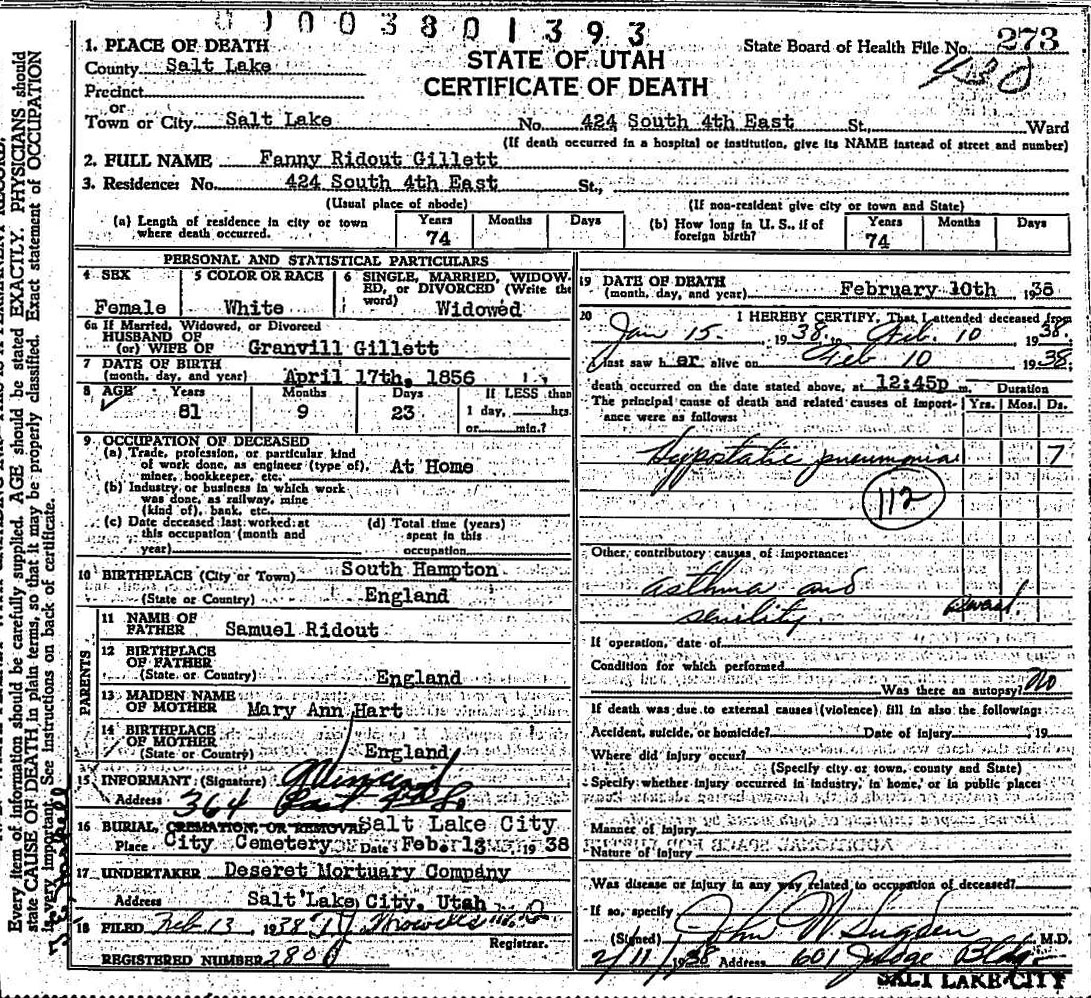 01003801393
1. PLACE OF DEATH
County Salt Lake
Precinct
or
Town or City Salt Lake No. 424 South 4th East St., Ward
STATE OF UTAH
CERTIFICATE OF DEATH
State Board of Health File No. 273
430
(If death occurred in a hospital or institution, give its NAME instead of street and number)
2. FULL NAME Fanny Ridout Gillett
3. Residence: No. 424 South 4th East St.,
(Usual place of abode) (If non-resident give city or town and State)
(a) Length of residence in city or town where death occurred. Years 74 Months Days
(b) How long in U. S., if of foreign birth? Years 74 Months Days
PERSONAL AND STATISTICAL PARTICULARS
4 SEX Female
5 COLOR OR RACE White
6 SINGLE, MARRIED, WIDOWED, OR DIVORCED (Write the word) Widowed
6a If Married, Widowed, or Divorced
HUSBAND OF
(or) WIFE OF Granvill Gillett
7 DATE OF BIRTH
(month, day, and year) April 17th, 1856
8 AGE Years 81 Months 9 Days 23 If LESS than 1 day, hrs. or min.?
9 OCCUPATION OF DECEASED
(a) Trade, profession, or particular kind
of work done, as engineer (type of), At Home
miner, bookkeeper, etc.
(b) Industry or business in which work
was done, as railway, mine
(kind of), bank, etc.
(c) Date deceased last worked at this occupation (month and year)
(d) Total time (years) spent in this occupation
10 BIRTHPLACE (City or Town) South Hampton
(State or Country) England
PARENTS
11 NAME OF FATHER Samuel Ridout
12 BIRTHPLACE OF FATHER
(State or Country) England
13 MAIDEN NAME OF MOTHER Mary Ann Hart
14 BIRTHPLACE OF MOTHER
(State or Country) England
15 INFORMANT (Signature)
Address 364 East
16 BURIAL, CREMATION, OR REMOVAL Salt Lake City
Place City Cemetery Date Feb. 13 1938
17 UNDERTAKER Deseret Mortuary Company
Address Salt Lake City, Utah
18 FILED Feb 13, 1938
Registrar.
REGISTERED NUMBER 2800
19 DATE OF DEATH
(month, day, and year) February 10th 1938
20 I HEREBY CERTIFY, That I attended deceased from
Jan 15, 1938, to Feb. 10 1938.
I last saw her alive on Feb 10 1938;
death occurred on the date stated above, at 12:45p m. Duration
The principal cause of death and related causes of importance were as follows: Yrs. Mos. Ds.
Hypostatic pneumonia 7
112
Other contributory causes of importance:
asthma and
senility.
If operation, date of
Condition for which performed
Was there an autopsy? No
If death was due to external causes (violence) fill in also the following:
Accident, suicide, or homicide? Date of injury , 19
Where did injury occur?
(Specify city or town, county and State)
Specify whether injury occurred in industry, in home, or in public place:
Manner of Injury
Nature of Injury
Was disease or injury in any way related to occupation of deceased?
If so, specify
(Signed) John W Sugden M.D.
2/11/1938 Address 601 Judge Bldg
SALT LAKE CITY
Every item of information should be carefully supplied. AGE should be stated EXACTLY. PHYSICIANS should
state CAUSE OF DEATH in plain terms, so that it may be properly classified. Exact statement of OCCUPATION
is very important. See instructions on back of certificate.